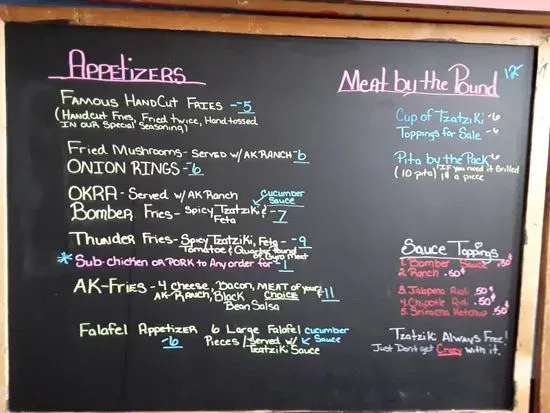 APPETIZERS
FAMOUS HANDCUT FRIES --5
(HANDCUT FRIES, FRIED TWICE, HAND TOSSED
IN OUR SPECIAL SEASONING)
FRIED MUSHROOMS - SERVED W/ AK RANCH -6
ONION RINGS -6
OKRA - SERVED W/ AK RANCH
CUCUMBER
SAUCE
BOMBER FRIES - SPICY TZATZIKI &
FETA -7
THUNDER FRIES - SPICY TZATZIKI, FETA -9
TOMATOE & QUARTER POUND
OF GYRO MEAT
* SUB-CHICKEN OR PORK TO ANY ORDER FOR -1
AK-FRIES - 4 CHEESE, BACON, MEAT OF YOUR
AK-RANCH, BLACK CHOICE -11
BEAN SALSA
FALAFEL APPETIZER 6 LARGE FALAFEL CUCUMBER
-6 PIECES / SERVED W/ SAUCE
TZATZIKI SAUCE
MEAT BY THE POUND 12
CUP OF TZATZIKI -6
TOPPINGS FOR SALE -6
PITA BY THE PACK -6
(10 PITA) IF YOU NEED IT GRILLED
A PIECE
SAUCE TOPPINGS
1. BOMBER SAUCE .50¢
2. RANCH .50¢
3. JALAPENO AIOLI .50¢
4. CHIPOTLE AIOLI .50¢
5. SRIRACHA KETCHUP .50¢
TZATZIKI ALWAYS FREE!
JUST DON'T GET CRAZY WITH IT.